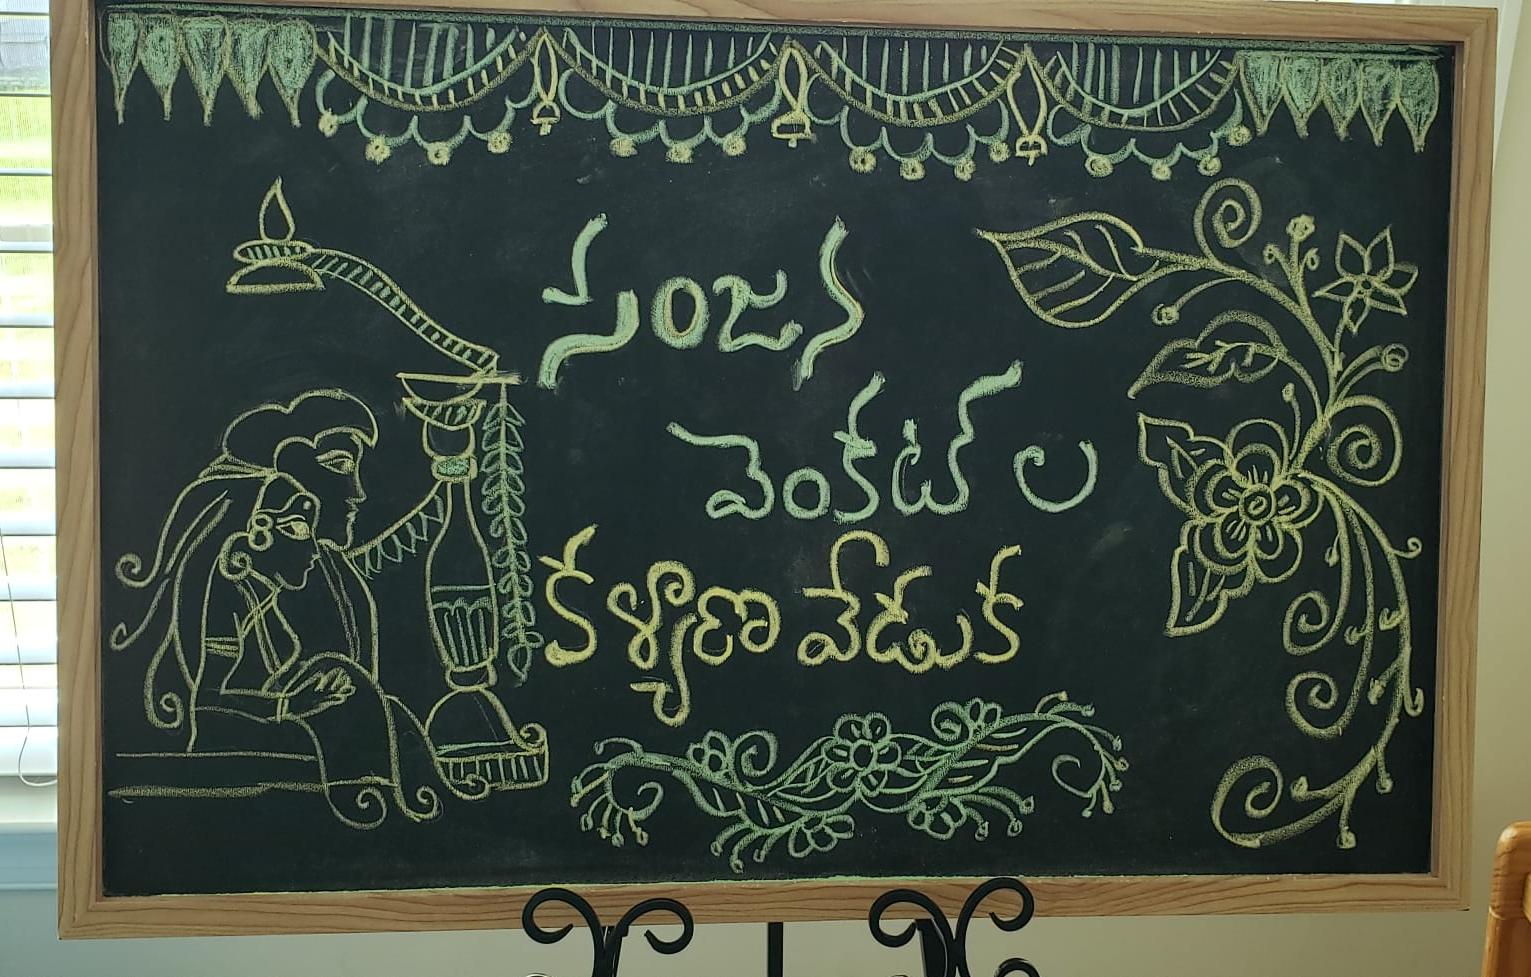 సంజన
వెంకట్ ల
కళ్యాణ వేడుక